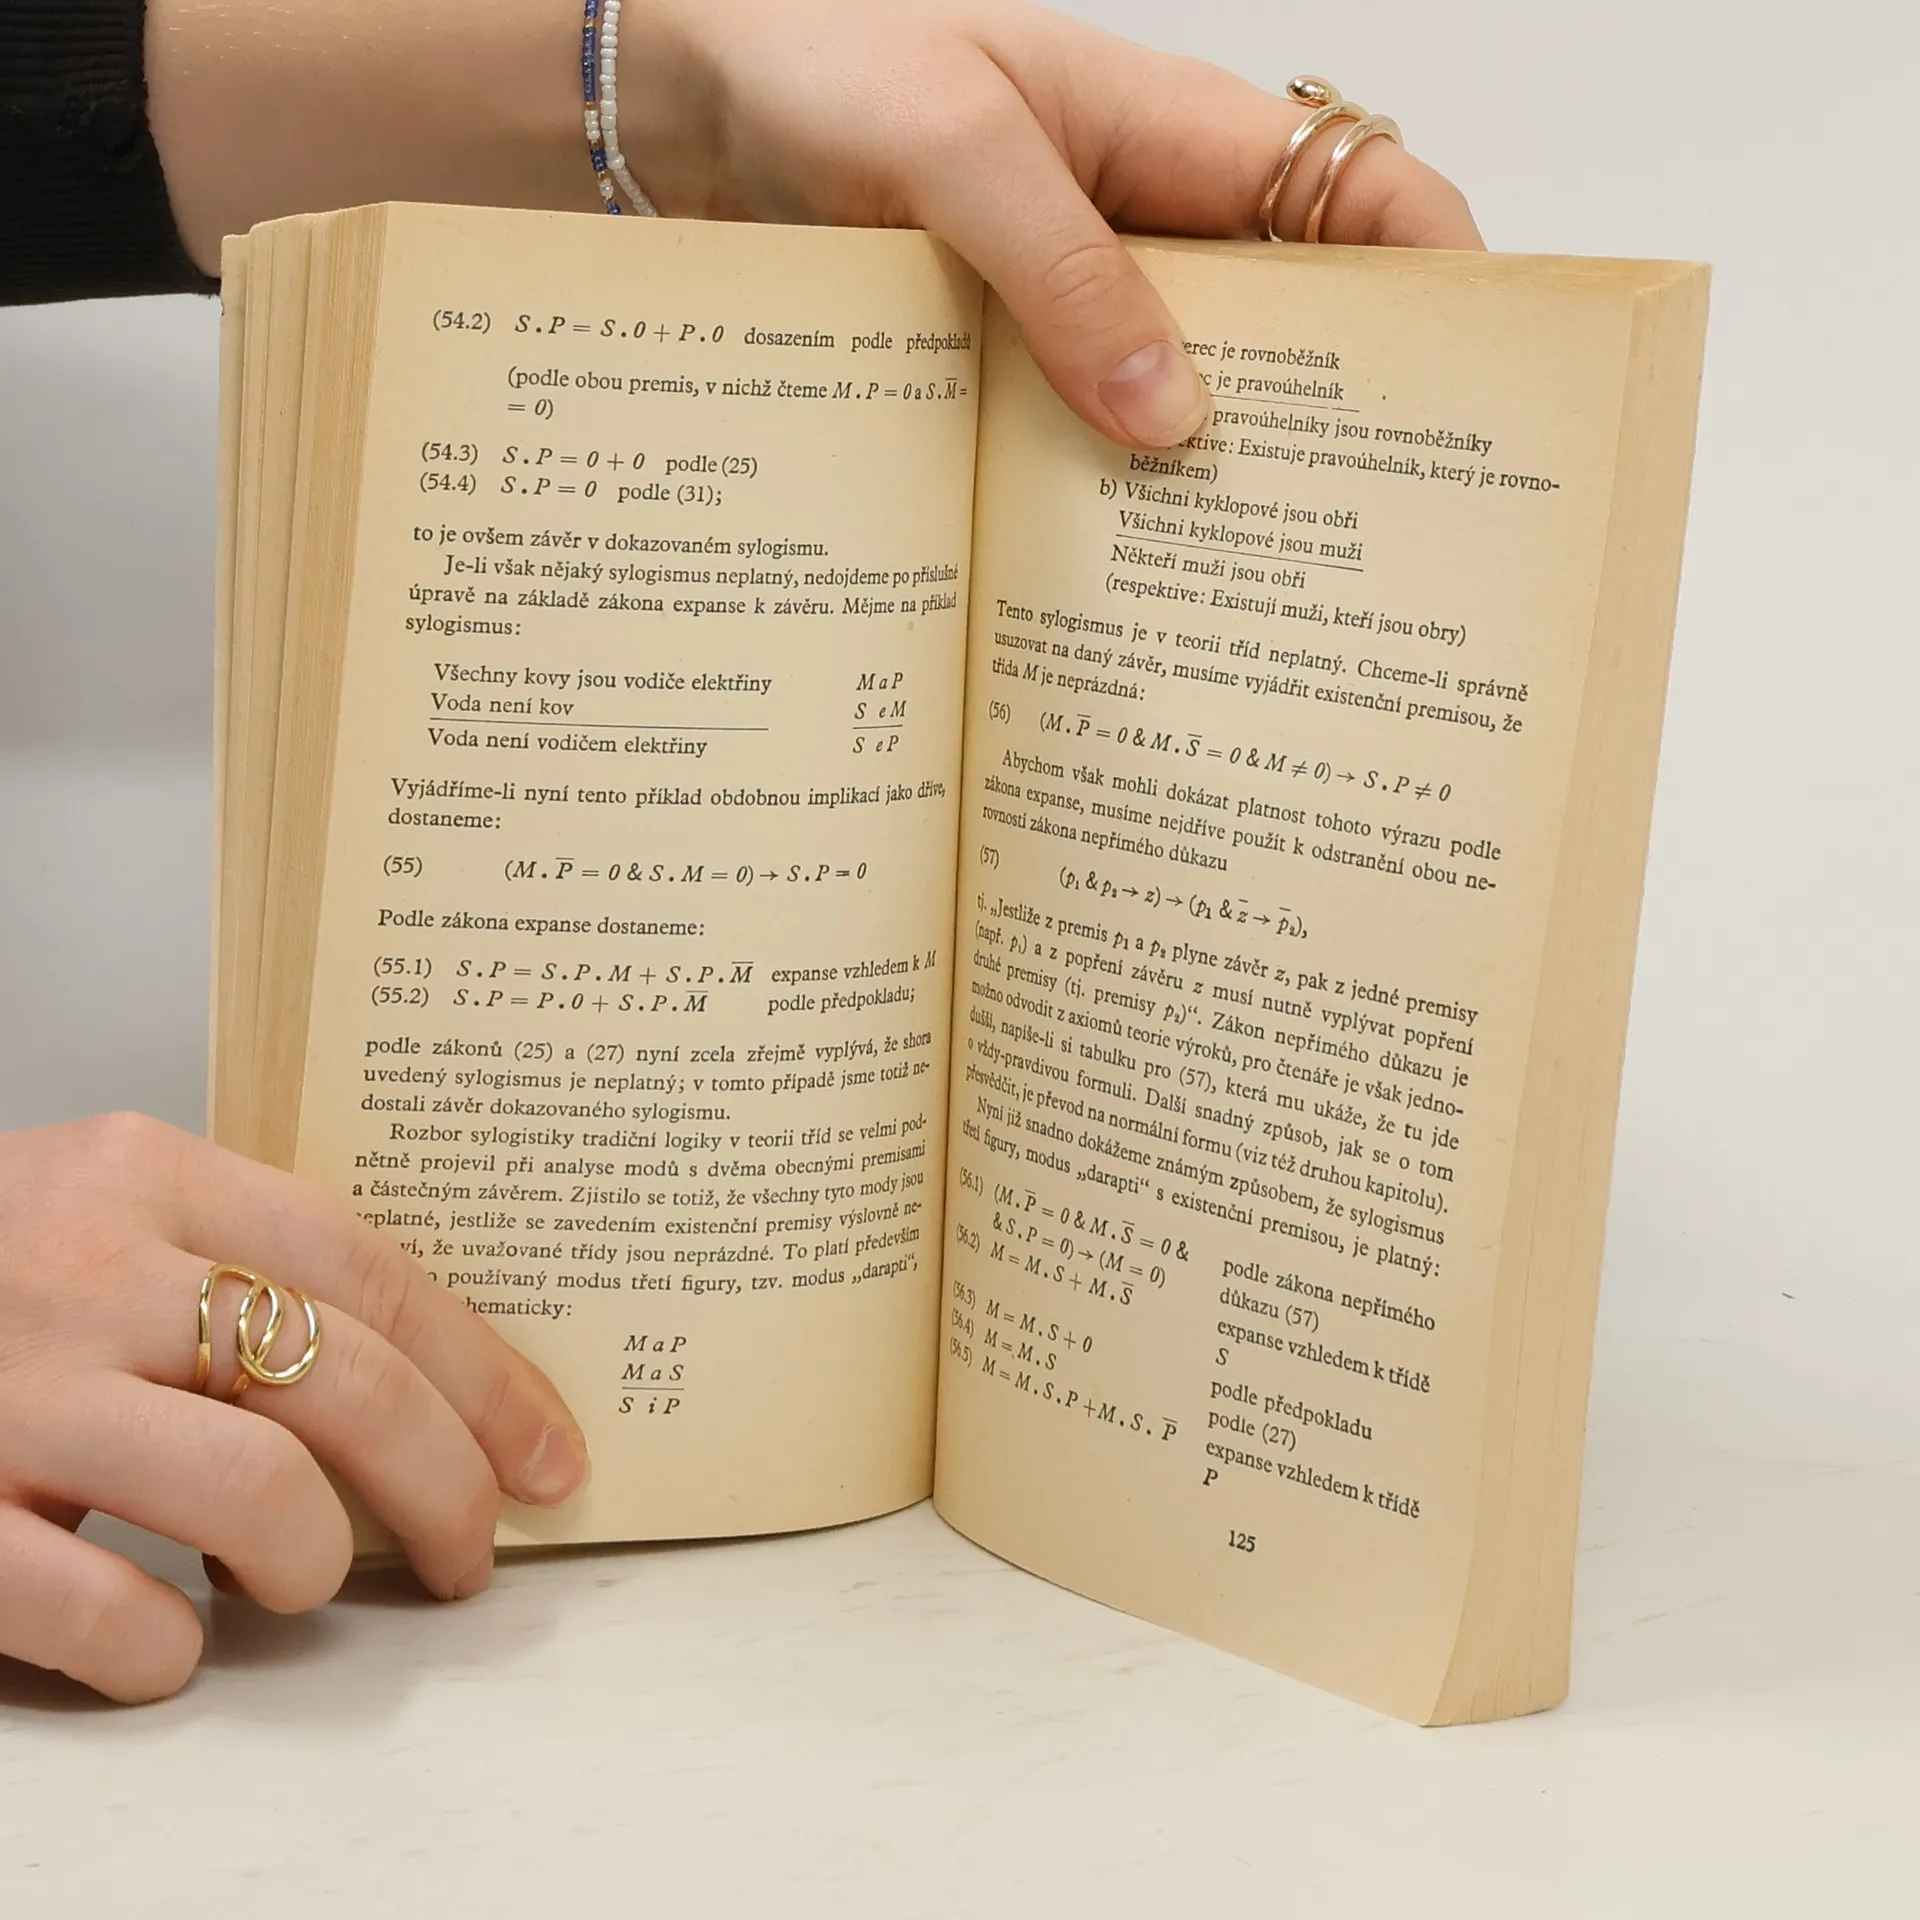 (54.2) S . P = S . 0 + P . 0 dosazením podle předpokladů
(podle obou premis, v nichž čteme M . P = 0 a S . M̅ =
= 0)
(54.3) S . P = 0 + 0 podle (25)
(54.4) S . P = 0 podle (31);
to je ovšem závěr v dokazovaném sylogismu.
Je-li však nějaký sylogismus neplatný, nedojdeme po příslušné
úpravě na základě zákona expanse k závěru. Mějme na příklad
sylogismus:
Všechny kovy jsou vodiče elektřiny M a P
Voda není kov S e M
Voda není vodičem elektřiny S e P
Vyjádříme-li nyní tento příklad obdobnou implikací jako dříve,
dostaneme:
(55) (M . P̅ = 0 & S . M = 0) → S . P = 0
Podle zákona expanse dostaneme:
(55.1) S . P = S . P . M + S . P . M̅ expanse vzhledem k M
(55.2) S . P = P . 0 + S . P . M̅ podle předpokladu;
podle zákonů (25) a (27) nyní zcela zřejmě vyplývá, že shora
uvedený sylogismus je neplatný; v tomto případě jsme totiž ne-
dostali závěr dokazovaného sylogismu.
Rozbor sylogistiky tradiční logiky v teorii tříd se velmi pod-
nětně projevil při analyse modů s dvěma obecnými premisami
a částečným závěrem. Zjistilo se totiž, že všechny tyto mody jsou
neplatné, jestliže se zavedením existenční premisy výslovně ne-
že uvažované třídy jsou neprázdné. To platí především
používaný modus třetí figury, tzv. modus „darapti“,
M a P
M a S
S i P
je rovnoběžník
je pravoúhelník
pravoúhelníky jsou rovnoběžníky
Existuje pravoúhelník, který je rovno-
běžníkem)
b) Všichni kyklopové jsou obři
Všichni kyklopové jsou muži
Někteří muži jsou obři
(respektive: Existují muži, kteří jsou obry)
Tento sylogismus je v teorii tříd neplatný. Chceme-li správně
usuzovat na daný závěr, musíme vyjádřit existenční premisou, že
třída M je neprázdná:
(56) (M . P̅ = 0 & M . S̅ = 0 & M ≠ 0) → S . P ≠ 0
Abychom však mohli dokázat platnost tohoto výrazu podle
zákona expanse, musíme nejdříve použít k odstranění obou ne-
rovností zákona nepřímého důkazu
(57) (p₁ & p₂ → z) → (p₁ & z̅ → p̅₂),
tj. „Jestliže z premis p₁ a p₂ plyne závěr z, pak z jedné premisy
(např. p₁) a z popření závěru z musí nutně vyplývat popření
druhé premisy (tj. premisy p₂)“. Zákon nepřímého důkazu je
možno odvodit z axiomů teorie výroků, pro čtenáře je však jedno-
dušší, napíše-li si tabulku pro (57), která mu ukáže, že tu jde
o vždy-pravdivou formuli. Další snadný způsob, jak se o tom
přesvědčit, je převod na normální formu (viz též druhou kapitolu).
Nyní již snadno dokážeme známým způsobem, že sylogismus
třetí figury, modus „darapti“ s existenční premisou, je platný:
(56.1) (M . P̅ = 0 & M . S̅ = 0 &
& S . P = 0) → (M = 0) podle zákona nepřímého
důkazu (57)
(56.2) M = M . S + M . S̅ expanse vzhledem k třídě
S
(56.3) M = M . S + 0 podle předpokladu
(56.4) M = M . S podle (27)
(56.5) M = M . S . P + M . S . P̅ expanse vzhledem k třídě
P
125